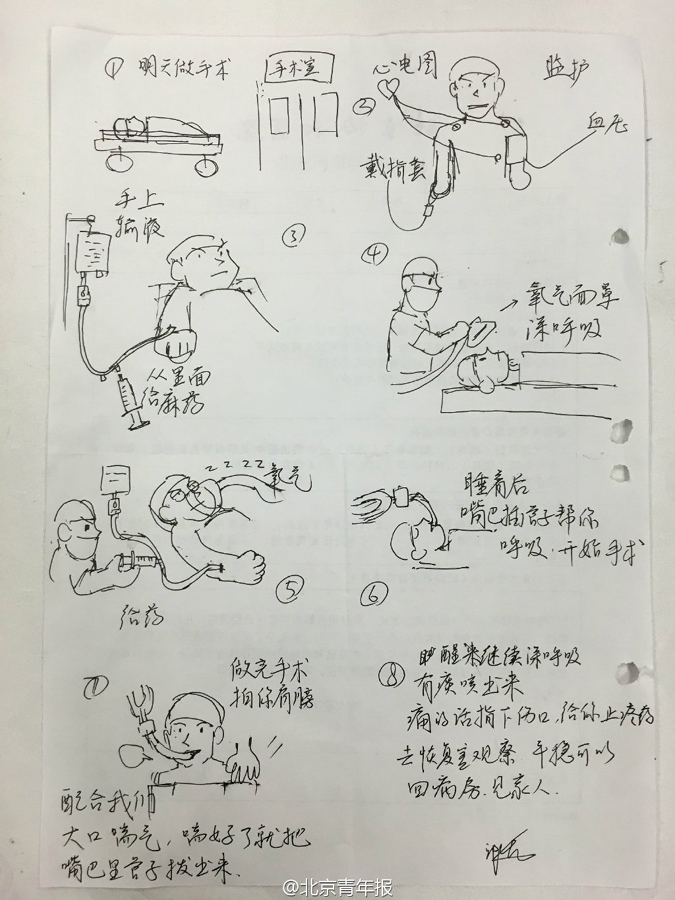 ① 明天做手术
手术室
② 心电图
监护
血压
戴指套
③ 手上
输液
从里面
给麻药
④ → 氧气面罩
深呼吸
⑤ zzzz
氧气
给药
⑥ 睡着后
嘴巴插管子帮你
呼吸.开始手术
⑦ 做完手术
拍你肩膀
配合我们
大口喘气,喘好了就把
嘴巴里管子拔出来.
⑧ 醒来继续深呼吸
有痰咳出来
痛的话指下伤口,给你止疼药
去恢复室观察 平稳可以
回病房.见家人.
@北京青年报